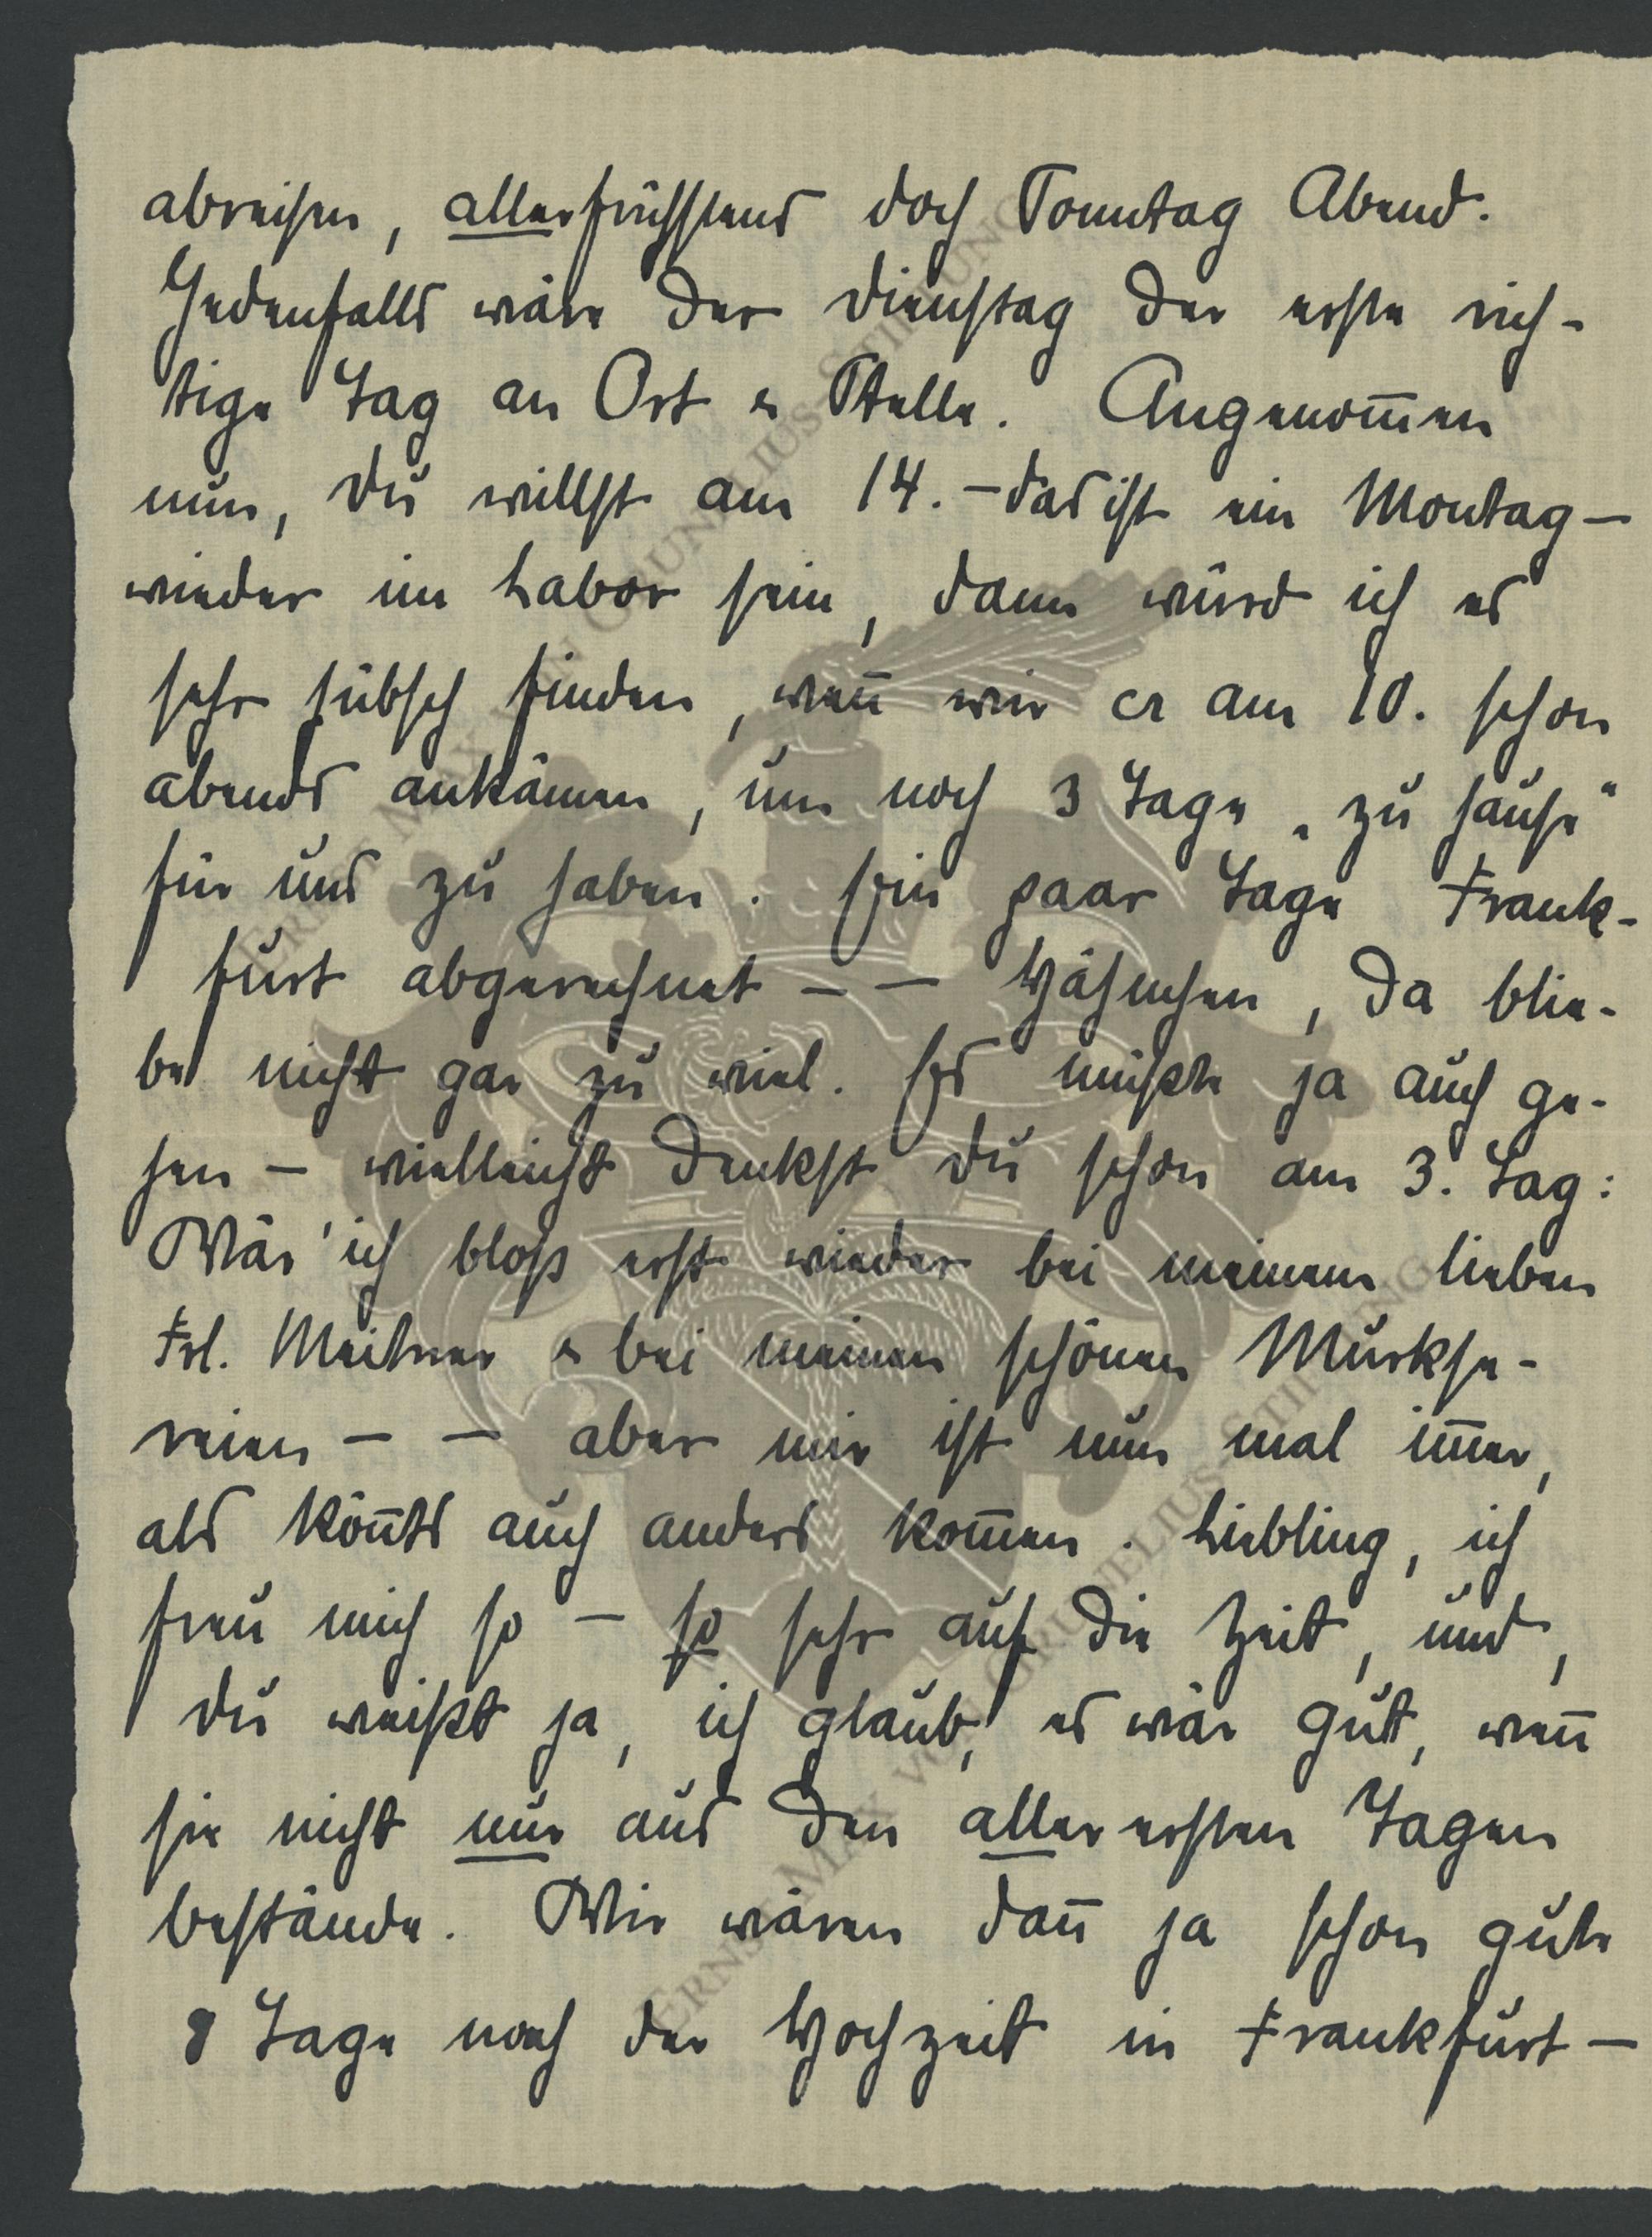 abreisen, allerfrühstens doch Sonntag Abend.
Jedenfalls wäre der Dienstag der erste rich-
tige Tag an Ort u Stelle. Angenom̅en
nun, Du willst am 14. – das ist ein Montag –
wieder im Labor sein, dann würd ich es
sehr hübsch finden, wen̅ wir cr am 10. schon
abends ankämen, um noch 3 Tage „zu Hause“
für uns zu haben. Ein paar Tage Frank-
furt abgerechnet – – Hähnchen, da blie-
be nicht gar zu viel. Es müsste ja auch ge-
hen – vielleicht denkst Du schon am 3. Tag:
Wär' ich bloss erst wieder bei meinem lieben
Frl. Meitner u bei meinen schönen Murkse-
reien – – aber mir ist nun mal im̅er,
als kön̅ts auch anders kom̅en. Liebling, ich
freu mich so – so sehr auf die Zeit, und,
Du weisst ja, ich glaub, es wär gut, wen̅
sie nicht nur aus den allerersten Tagen
bestände. Wir wären dan̅ ja schon gute
8 Tage nach der Hochzeit in Frankfurt –
ERNST MAX VON GRUNELIUS STIFTUNG
ERNST MAX VON GRUNELIUS STIFTUNG